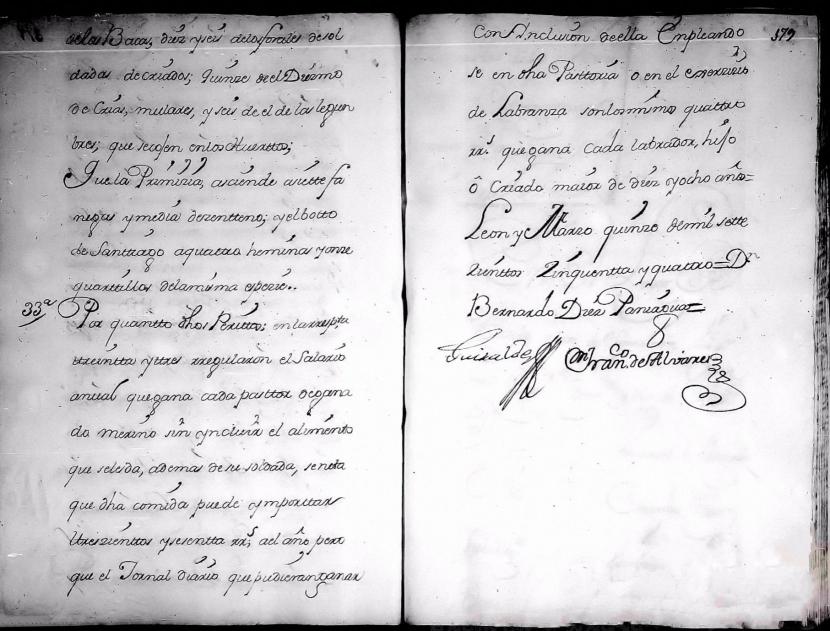 de las Bacas, diez y seis delos forales de sol
dadas de criados; Quinze de el Diezmo
de Crias, mulares, y seis de el de las legum
bres; que secojen en los Huerttos;
Que la Primizia, asciende a siette fa
negas y media de zentteno; y el botto
de Santtiago a quattro hemina y onze
quarttillos de la misma espezie..
33ª Por quantto dhos Perittos; en la respta
ttreintta y ttres rregularon el Salario
anual que gana cada pasttor de gana
do merino sin yncluir el alimento
que seleda, ademas de su soldada, se nota
que dha comida puede ymporttar
ttreszienttos y sesentta rrs; ael año pero
que el Jornal diario que pudieran ganar
579
Con Ynclusion de ella Empleando
se en dha Pasttoria o en el exerzizio
de Labranza son los mismo quattro
rrs. que gana cada labrador, hijo
ô Criado maior de diez y ocho años=
Leon y Marzo quinze de mil sette
zienttos zinquentta y quatro= Dn
Bernardo Diez Paniagua=
Franco. de Alvarez